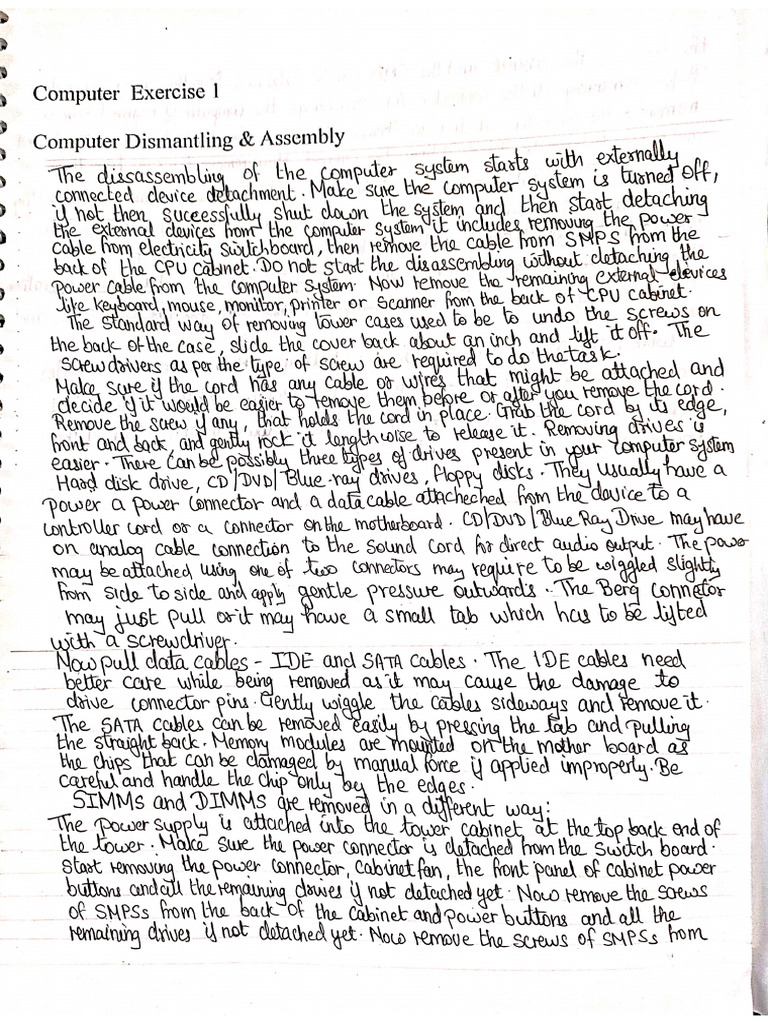 Computer Exercise 1
Computer Dismantling & Assembly
The dissassembling of the computer system starts with externally
connected device detachment. Make sure the computer system is turned off,
if not then successfully shut down the system and then start detaching
the external devices from the computer system it includes removing the power
cable from electricity switchboard, then remove the cable from SMPS from the
back of the CPU cabinet. Do not start the disassembling without detaching the
power cable from the computer system. Now remove the remaining external devices
like keyboard, mouse, monitor, printer or scanner from the back of CPU cabinet.
The standard way of removing tower cases used to be to undo the screws on
the back of the case, slide the cover back about an inch and lift it off. The
screwdrivers as per the type of screw are required to do the task.
Make sure if the cord has any cable or wires that might be attached and
decide if it would be easier to remove them before or after you remove the cord.
Remove the screw if any, that holds the cord in place. Grab the cord by its edge,
front and back, and gently rock it lengthwise to release it. Removing drives is
easier. There can be possibly three types of drives present in your computer system
Hard disk drive, CD/DVD/Blue-ray drives, floppy disks. They usually have a
power a power connector and a data cable attacheched from the device to a
controller cord or a connector on the motherboard. CD/DVD/Blue Ray Drive may have
on analog cable connection to the sound cord for direct audio output. The power
may be attached using one of two connectors may require to be wiggled slightly
from side to side and apply gentle pressure outwards. The Berg connetor
may just pull or it may have a small tab which has to be lifted
with a screwdriver.
Now pull data cables - IDE and SATA cables. The IDE cables need
better care while being removed as it may cause the damage to
drive connector pins. Gently wiggle the cables sideways and remove it.
The SATA cables can be removed easily by pressing the tab and pulling
the straight back. Memory modules are mounted on the mother board as
the chips that can be damaged by manual force if applied improperly. Be
careful and handle the chip only by the edges.
SIMMs and DIMMs are removed in a different way:
The power supply is attached into the tower cabinet at the top back end of
the tower. Make sure the power connector is detached from the switch board.
start removing the power connector, cabinet fan, the front panel of cabinet power
buttons and all the remaining drives if not detached yet. Now remove the screws
of SMPSs from the back of the cabinet and power buttons and all the
remaining drives if not detached yet. Now remove the screws of SMPSs from